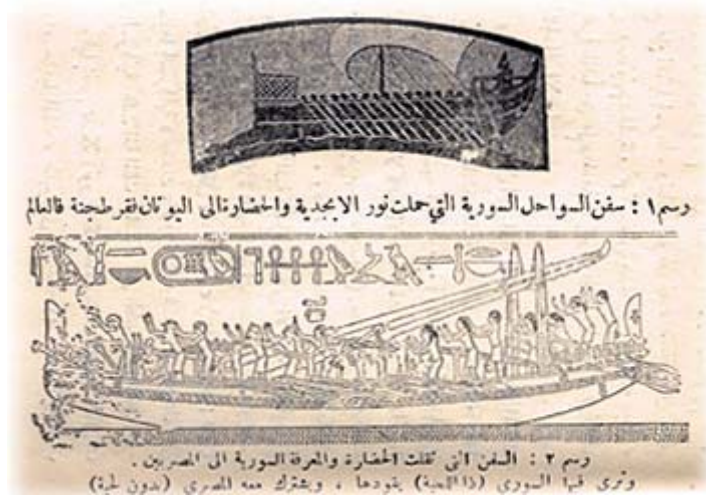 رسم ١ : سفن السواحل السورية التي حملت نور الابجدية والحضارة الى اليونان فقرطجنة فالعالم
رسم ٢ : السفن التي نقلت الحضارة والمعرفة السورية الى المصريين .
وترى فيها السوري (ذا اللحية) يقودها ، ويشترك معه المصري (بدون لحية)